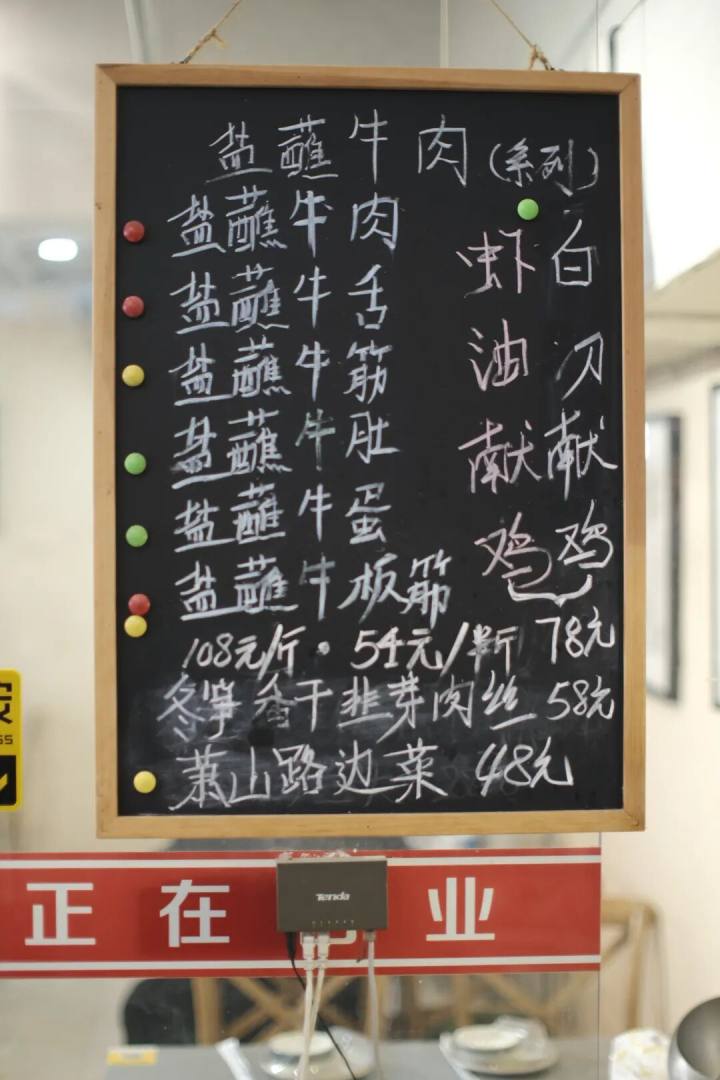 盐蘸牛肉(系列)
盐蘸牛肉
盐蘸牛舌
盐蘸牛筋
盐蘸牛肚
盐蘸牛蛋
盐蘸牛板筋
108元/斤·54元/半斤
虾油献鸡
白刀献鸡
78元
冬笋香干韭芽肉丝 58元
萧山路边菜 48元
正在 业
Tenda